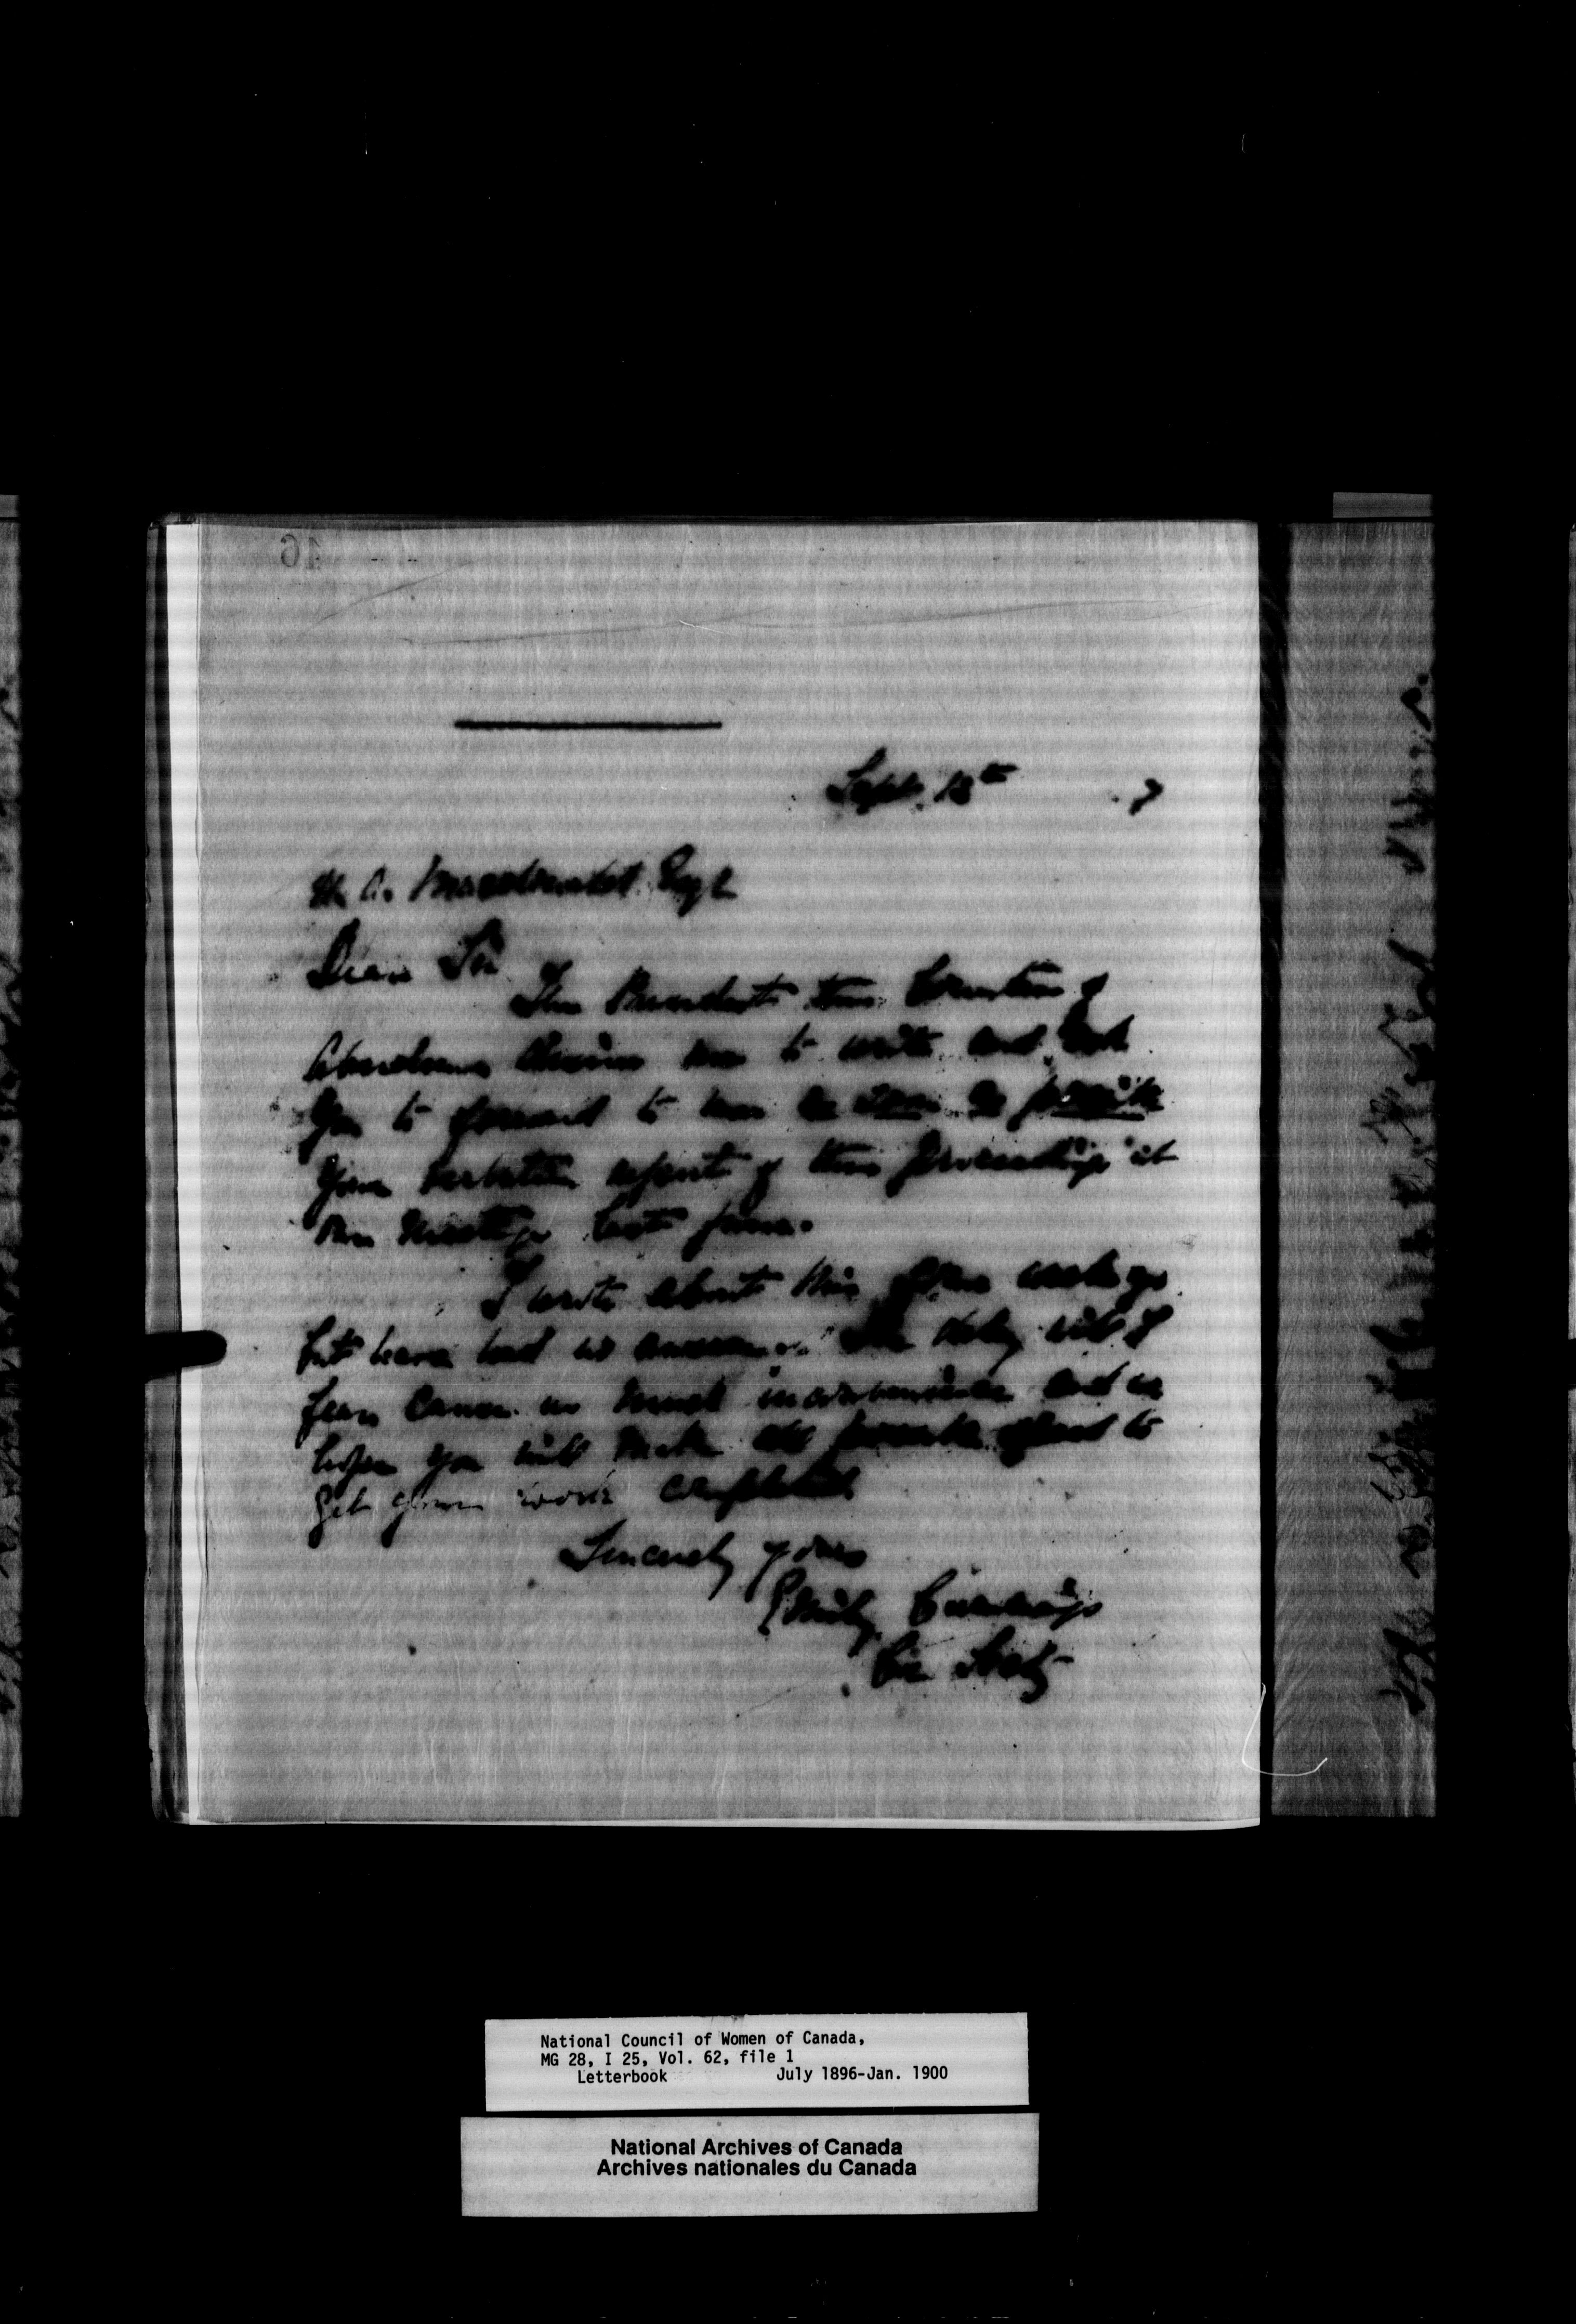 16
Sept. 13th 7
Dear Sir
The President the Countess of
Aberdeen desires me to write and ask
you to forward to me as soon as possible
your verbatim report of the proceedings at
our meetings last June.
I wrote about this some weeks ago
but have had no answer. The delay will I
fear cause us much inconvenience and we
hope you will make all possible effort to
get your work completed.
Sincerely yours
Emily Cummings
Cor. Secty
National Council of Women of Canada,
MG 28, I 25, Vol. 62, file 1
Letterbook July 1896-Jan. 1900
National Archives of Canada
Archives nationales du Canada